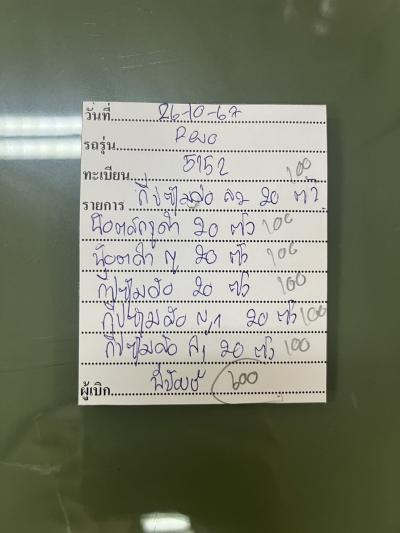 วันที่ 26-10-67
รถรุ่น Revo
ทะเบียน 5152
รายการ กิ๊ปซุ้มล้อ 20 ตัว 100
น๊อตสกรูดำ 20 ตัว 100
น๊อตดำ 20 ตัว 100
กิ๊ปซุ้มล้อ 20 ตัว 100
กิ๊ปซุ้มล้อ 20 ตัว 100
กิ๊ปซุ้มล้อ 20 ตัว 100
ผู้เบิก 600